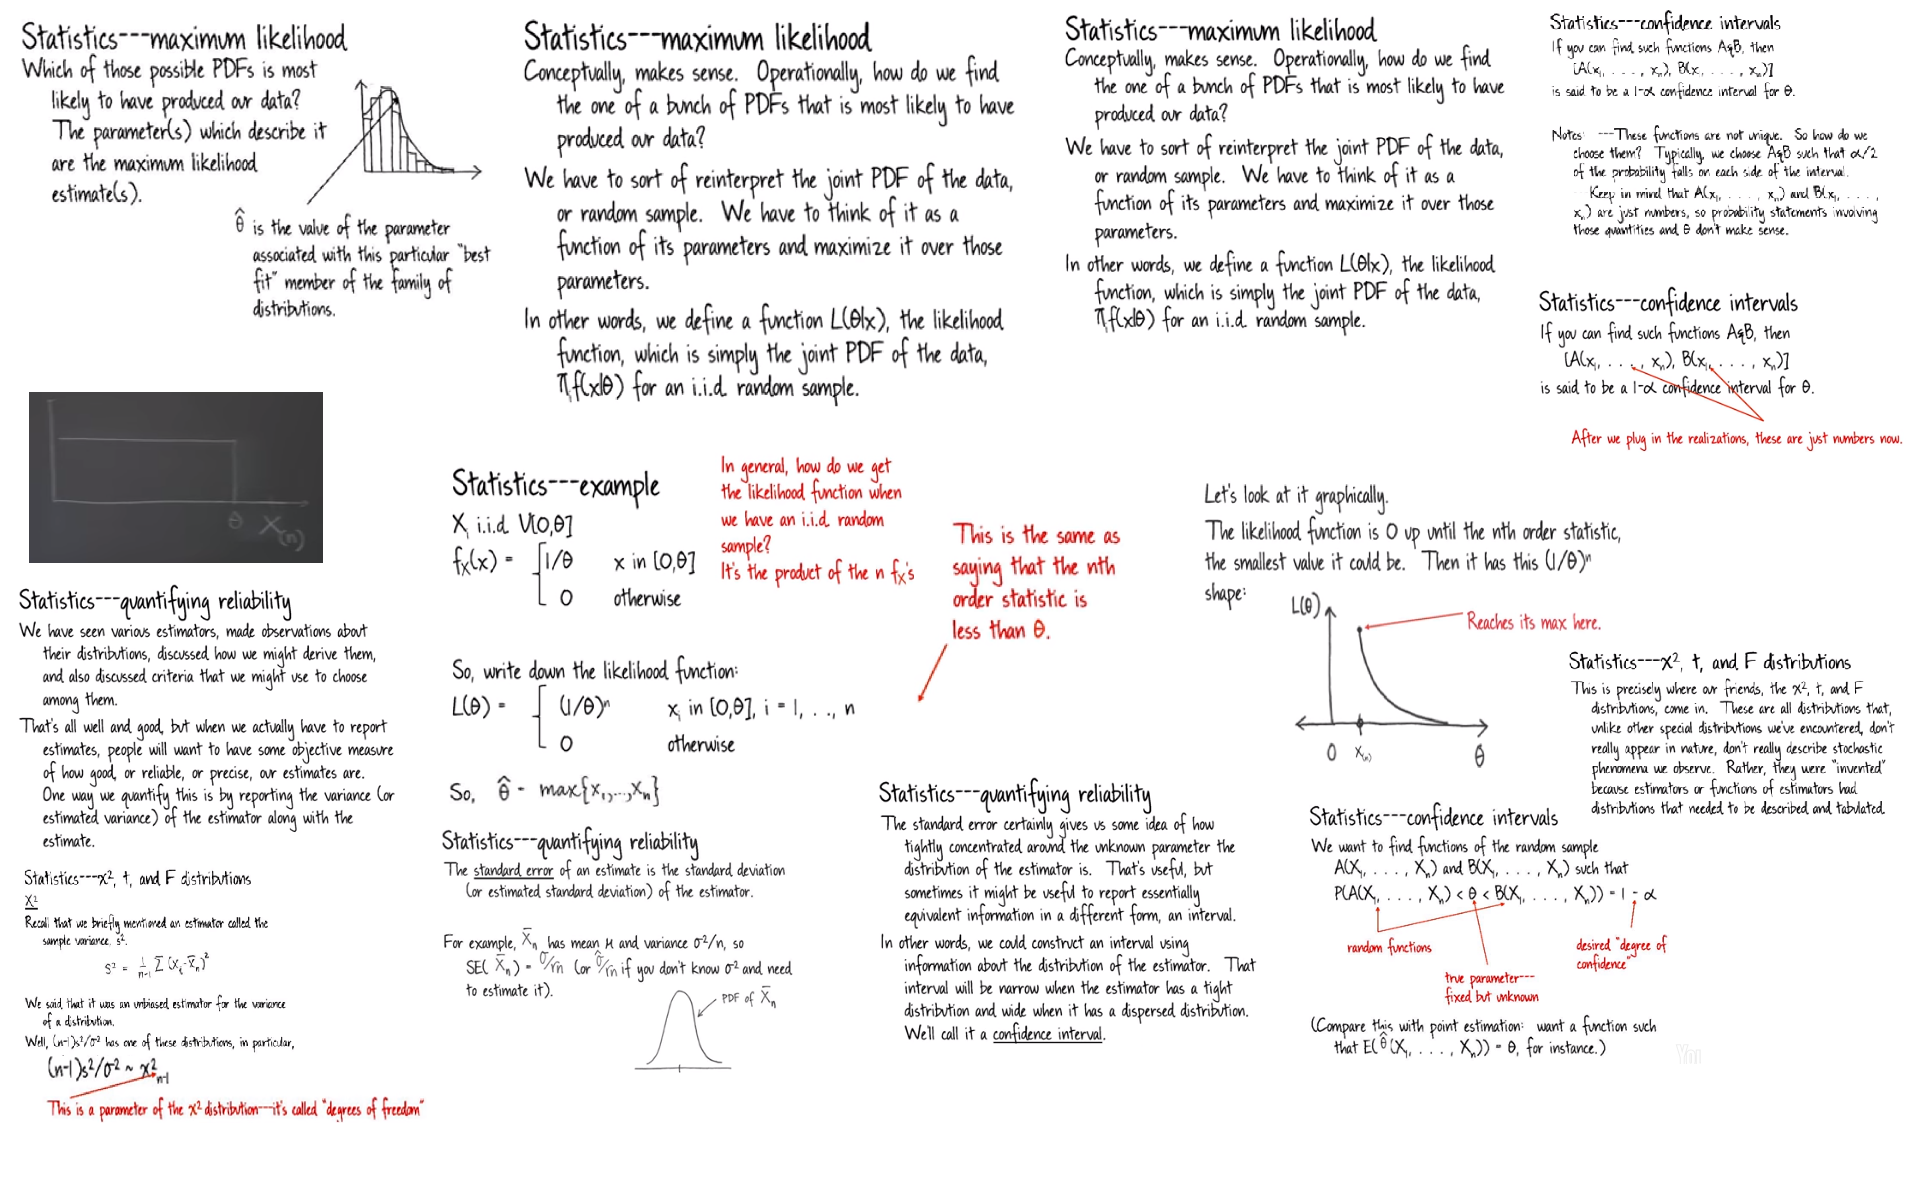 Statistics---maximum likelihood
Which of those possible PDFs is most
likely to have produced our data?
The parameter(s) which describe it
are the maximum likelihood
estimate(s).
θ̂ is the value of the parameter
associated with this particular "best
fit" member of the family of
distributions.
Statistics---maximum likelihood
Conceptually, makes sense. Operationally, how do we find
the one of a bunch of PDFs that is most likely to have
produced our data?
We have to sort of reinterpret the joint PDF of the data,
or random sample. We have to think of it as a
function of its parameters and maximize it over those
parameters.
In other words, we define a function L(θ|x), the likelihood
function, which is simply the joint PDF of the data,
πᵢf(x|θ) for an i.i.d. random sample.
Statistics---maximum likelihood
Conceptually, makes sense. Operationally, how do we find
the one of a bunch of PDFs that is most likely to have
produced our data?
We have to sort of reinterpret the joint PDF of the data,
or random sample. We have to think of it as a
function of its parameters and maximize it over those
parameters.
In other words, we define a function L(θ|x), the likelihood
function, which is simply the joint PDF of the data,
πᵢf(x|θ) for an i.i.d. random sample.
Statistics---confidence intervals
If you can find such functions A&B, then
[A(x₁, . . . , xₙ), B(x₁, . . . , xₙ)]
is said to be a 1-α confidence interval for θ.
Notes: ---These functions are not unique. So how do we
choose them? Typically, we choose A&B such that α/2
of the probability falls on each side of the interval.
Keep in mind that A(x₁, . . . , xₙ) and B(x₁, . . . ,
xₙ) are just numbers, so probability statements involving
those quantities and θ don't make sense.
Statistics---confidence intervals
If you can find such functions A&B, then
[A(x₁, . . . , xₙ), B(x₁, . . . , xₙ)]
is said to be a 1-α confidence interval for θ.
After we plug in the realizations, these are just numbers now.
θ X₍ₙ₎
Statistics---example
Xᵢ i.i.d. U[0,θ]
fₓ(x) = 1/θ x in [0,θ]
0 otherwise
In general, how do we get
the likelihood function when
we have an i.i.d. random
sample?
It's the product of the n fₓ's
This is the same as
saying that the nth
order statistic is
less than θ.
So, write down the likelihood function:
L(θ) = (1/θ)ⁿ xᵢ in [0,θ], i = 1, . . ., n
0 otherwise
So, θ̂ = max{x₁,...,xₙ}
Let's look at it graphically.
The likelihood function is 0 up until the nth order statistic,
the smallest value it could be. Then it has this (1/θ)ⁿ
shape:
L(θ)
Reaches its max here.
0 x₍ₙ₎ θ
Statistics---quantifying reliability
We have seen various estimators, made observations about
their distributions, discussed how we might derive them,
and also discussed criteria that we might use to choose
among them.
That's all well and good, but when we actually have to report
estimates, people will want to have some objective measure
of how good, or reliable, or precise, our estimates are.
One way we quantify this is by reporting the variance (or
estimated variance) of the estimator along with the
estimate.
Statistics---x², t, and F distributions
X²
Recall that we briefly mentioned an estimator called the
sample variance, s².
S² = 1/n-1 Σ (Xᵢ-X̄ₙ)²
We said that it was an unbiased estimator for the variance
of a distribution.
Well, (n-1)s²/σ² has one of these distributions, in particular,
(n-1)s²/σ² ~ x²ₙ₋₁
This is a parameter of the x² distribution---it's called "degrees of freedom"
Statistics---quantifying reliability
The standard error of an estimate is the standard deviation
(or estimated standard deviation) of the estimator.
For example, X̄ₙ has mean μ and variance σ²/n, so
SE( X̄ₙ) = σ/√n (or σ̂/√n if you don't know σ² and need
to estimate it).
PDF of X̄ₙ
Statistics---quantifying reliability
The standard error certainly gives us some idea of how
tightly concentrated around the unknown parameter the
distribution of the estimator is. That's useful, but
sometimes it might be useful to report essentially
equivalent information in a different form, an interval.
In other words, we could construct an interval using
information about the distribution of the estimator. That
interval will be narrow when the estimator has a tight
distribution and wide when it has a dispersed distribution.
We'll call it a confidence interval.
Statistics---x², t, and F distributions
This is precisely where our friends, the x², t, and F
distributions, come in. These are all distributions that,
unlike other special distributions we've encountered, don't
really appear in nature, don't really describe stochastic
phenomena we observe. Rather, they were "invented"
because estimators or functions of estimators had
distributions that needed to be described and tabulated.
Statistics---confidence intervals
We want to find functions of the random sample
A(X₁, . . . , Xₙ) and B(X₁, . . . , Xₙ) such that
P(A(X₁, . . . , Xₙ) < θ < B(X₁, . . . , Xₙ)) = 1 - α
random functions
true parameter---
fixed but unknown
desired "degree of
confidence"
(Compare this with point estimation: want a function such
that E(θ̂(X₁, . . . , Xₙ)) = θ, for instance.)